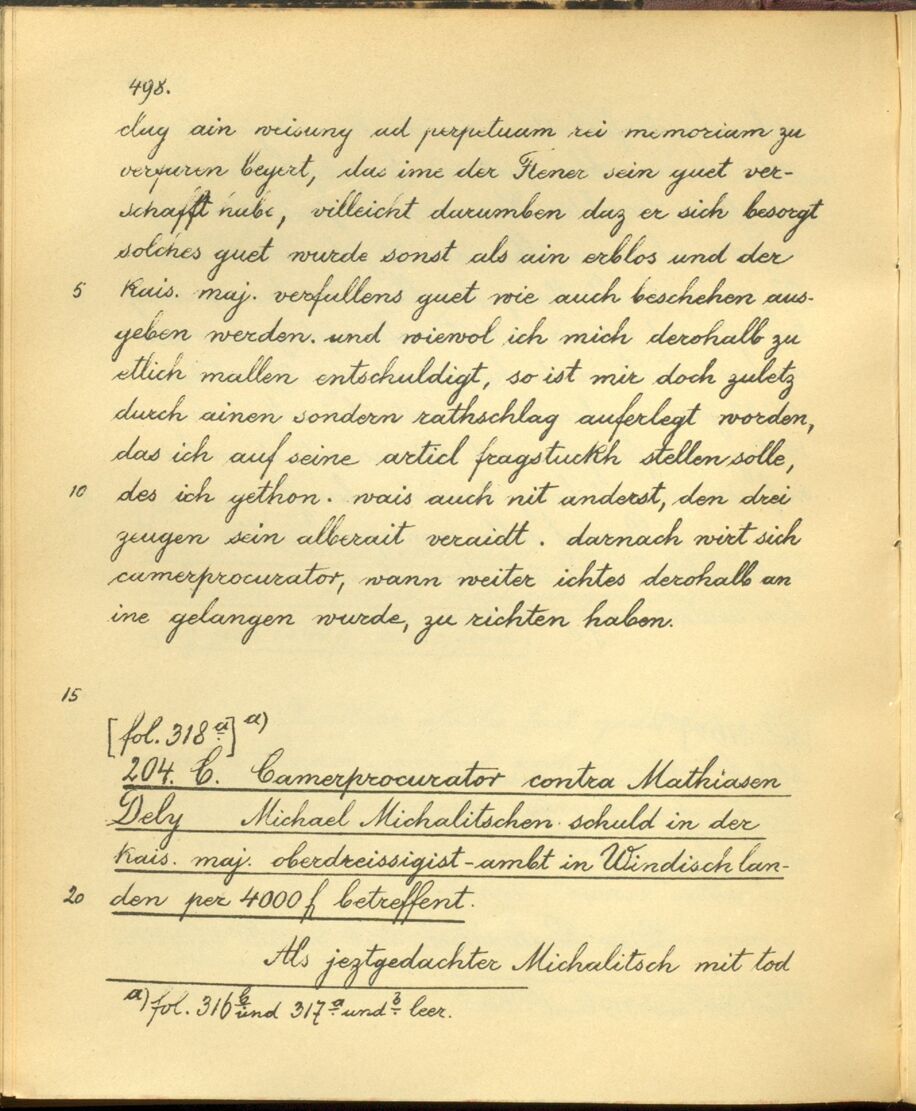 498.
clag ain weisung ad perpetuam rei memoriam zu
verfuren begert, das ime der Flener sein guet ver-
schafft habe, villeicht darumben daz er sich besorgt
solches guet wurde sonst als ain erblos und der
5 Kais. maj. verfallens guet wie auch beschehen aus-
geben werden. und wiewol ich mich derohalb zu
etlich mallen entschuldigt, so ist mir doch zuletz
durch ainen sondern rathschlag auferlegt worden,
das ich auf seine articl fragstuckh stellen solle,
10 des ich gethon. wais auch nit anderst, den drei
zeugen sein alberait veraidt. darnach wirt sich
camerprocurator, wann weiter ichtes derohalb an
ine gelangen wurde, zu richten haben.
15
[fol. 318 a] a)
204. C. Camerprocurator contra Mathiasen
Dely Michael Michalitschen schuld in der
Kais. maj. oberdreissigist-ambt in Windisch lan-
20 den per 4000 f betreffent.
Als jeztgedachter Michalitsch mit tod
a) fol. 316 b und 317 a und b leer.